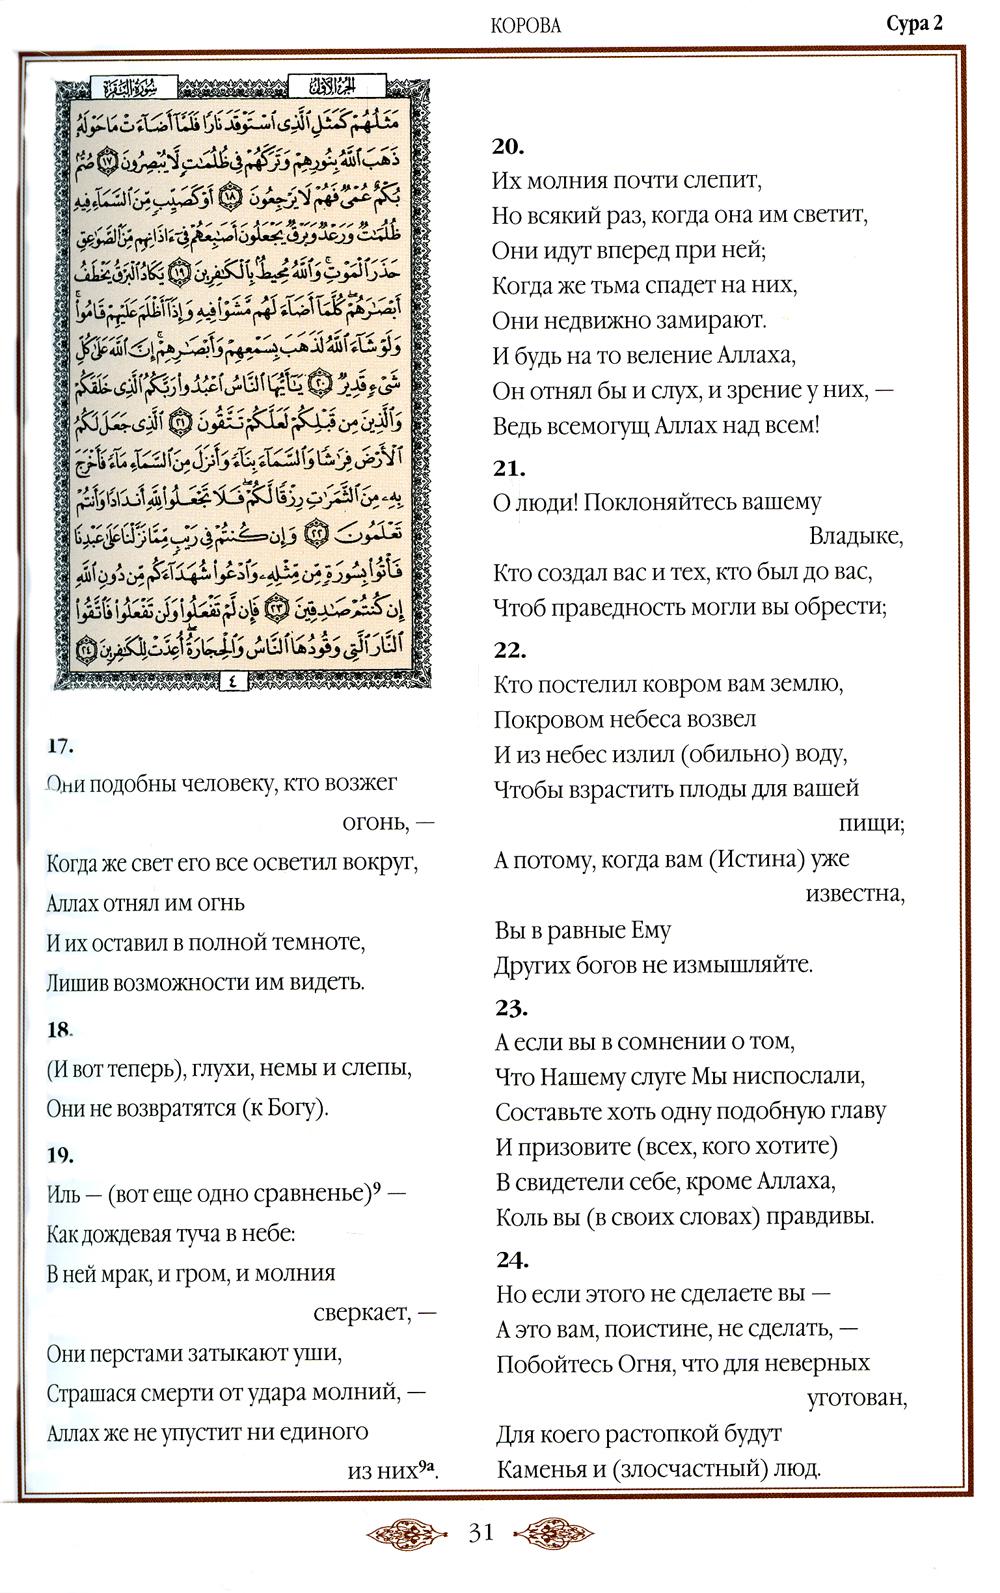 КОРОВА
Сура 2
سورة البقرة
الجزء الأول
مَثَلُهُمْ كَمَثَلِ ٱلَّذِى ٱسْتَوْقَدَ نَارًا فَلَمَّآ أَضَآءَتْ مَا حَوْلَهُۥ
ذَهَبَ ٱللَّهُ بِنُورِهِمْ وَتَرَكَهُمْ فِى ظُلُمَٰتٍ لَّا يُبْصِرُونَ ١٧ صُمٌّۢ
بُكْمٌ عُمْىٌ فَهُمْ لَا يَرْجِعُونَ ١٨ أَوْ كَصَيِّبٍ مِّنَ ٱلسَّمَآءِ فِيهِ
ظُلُمَٰتٌ وَرَعْدٌ وَبَرْقٌ يَجْعَلُونَ أَصَٰبِعَهُمْ فِىٓ ءَاذَانِهِم مِّنَ ٱلصَّوَٰعِقِ
حَذَرَ ٱلْمَوْتِ ۚ وَٱللَّهُ مُحِيطٌۢ بِٱلْكَٰفِرِينَ ١٩ يَكَادُ ٱلْبَرْقُ يَخْطَفُ
أَبْصَٰرَهُمْ ۖ كُلَّمَآ أَضَآءَ لَهُم مَّشَوْا۟ فِيهِ وَإِذَآ أَظْلَمَ عَلَيْهِمْ قَامُوا۟ ۚ
وَلَوْ شَآءَ ٱللَّهُ لَذَهَبَ بِسَمْعِهِمْ وَأَبْصَٰرِهِمْ ۚ إِنَّ ٱللَّهَ عَلَىٰ كُلِّ
شَىْءٍ قَدِيرٌ ٢٠ يَٰٓأَيُّهَا ٱلنَّاسُ ٱعْبُدُوا۟ رَبَّكُمُ ٱلَّذِى خَلَقَكُمْ
وَٱلَّذِينَ مِن قَبْلِكُمْ لَعَلَّكُمْ تَتَّقُونَ ٢١ ٱلَّذِى جَعَلَ لَكُمُ
ٱلْأَرْضَ فِرَٰشًا وَٱلسَّمَآءَ بِنَآءً وَأَنزَلَ مِنَ ٱلسَّمَآءِ مَآءً فَأَخْرَجَ
بِهِۦ مِنَ ٱلثَّمَرَٰتِ رِزْقًا لَّكُمْ ۖ فَلَا تَجْعَلُوا۟ لِلَّهِ أَندَادًا وَأَنتُمْ
تَعْلَمُونَ ٢٢ وَإِن كُنتُمْ فِى رَيْبٍ مِّمَّا نَزَّلْنَا عَلَىٰ عَبْدِنَا
فَأْتُوا۟ بِسُورَةٍ مِّن مِّثْلِهِۦ وَٱدْعُوا۟ شُهَدَآءَكُم مِّن دُونِ ٱللَّهِ
إِن كُنتُمْ صَٰدِقِينَ ٢٣ فَإِن لَّمْ تَفْعَلُوا۟ وَلَن تَفْعَلُوا۟ فَٱتَّقُوا۟
ٱلنَّارَ ٱلَّتِى وَقُودُهَا ٱلنَّاسُ وَٱلْحِجَارَةُ ۖ أُعِدَّتْ لِلْكَٰفِرِينَ ٢٤
٤
17.
Они подобны человеку, кто возжег
огонь, —
Когда же свет его все осветил вокруг,
Аллах отнял им огнь
И их оставил в полной темноте,
Лишив возможности им видеть.
18.
(И вот теперь), глухи, немы и слепы,
Они не возвратятся (к Богу).
19.
Иль — (вот еще одно сравненье)⁹ —
Как дождевая туча в небе:
В ней мрак, и гром, и молния
сверкает, —
Они перстами затыкают уши,
Страшася смерти от удара молний, —
Аллах же не упустит ни единого
из них⁹ᵃ.
20.
Их молния почти слепит,
Но всякий раз, когда она им светит,
Они идут вперед при ней;
Когда же тьма спадет на них,
Они недвижно замирают.
И будь на то веление Аллаха,
Он отнял бы и слух, и зрение у них, —
Ведь всемогущ Аллах над всем!
21.
О люди! Поклоняйтесь вашему
Владыке,
Кто создал вас и тех, кто был до вас,
Чтоб праведность могли вы обрести;
22.
Кто постелил ковром вам землю,
Покровом небеса возвел
И из небес излил (обильно) воду,
Чтобы взрастить плоды для вашей
пищи;
А потому, когда вам (Истина) уже
известна,
Вы в равные Ему
Других богов не измышляйте.
23.
А если вы в сомнении о том,
Что Нашему слуге Мы ниспослали,
Составьте хоть одну подобную главу
И призовите (всех, кого хотите)
В свидетели себе, кроме Аллаха,
Коль вы (в своих словах) правдивы.
24.
Но если этого не сделаете вы —
А это вам, поистине, не сделать, —
Побойтесь Огня, что для неверных
уготован,
Для коего растопкой будут
Каменья и (злосчастный) люд.
31